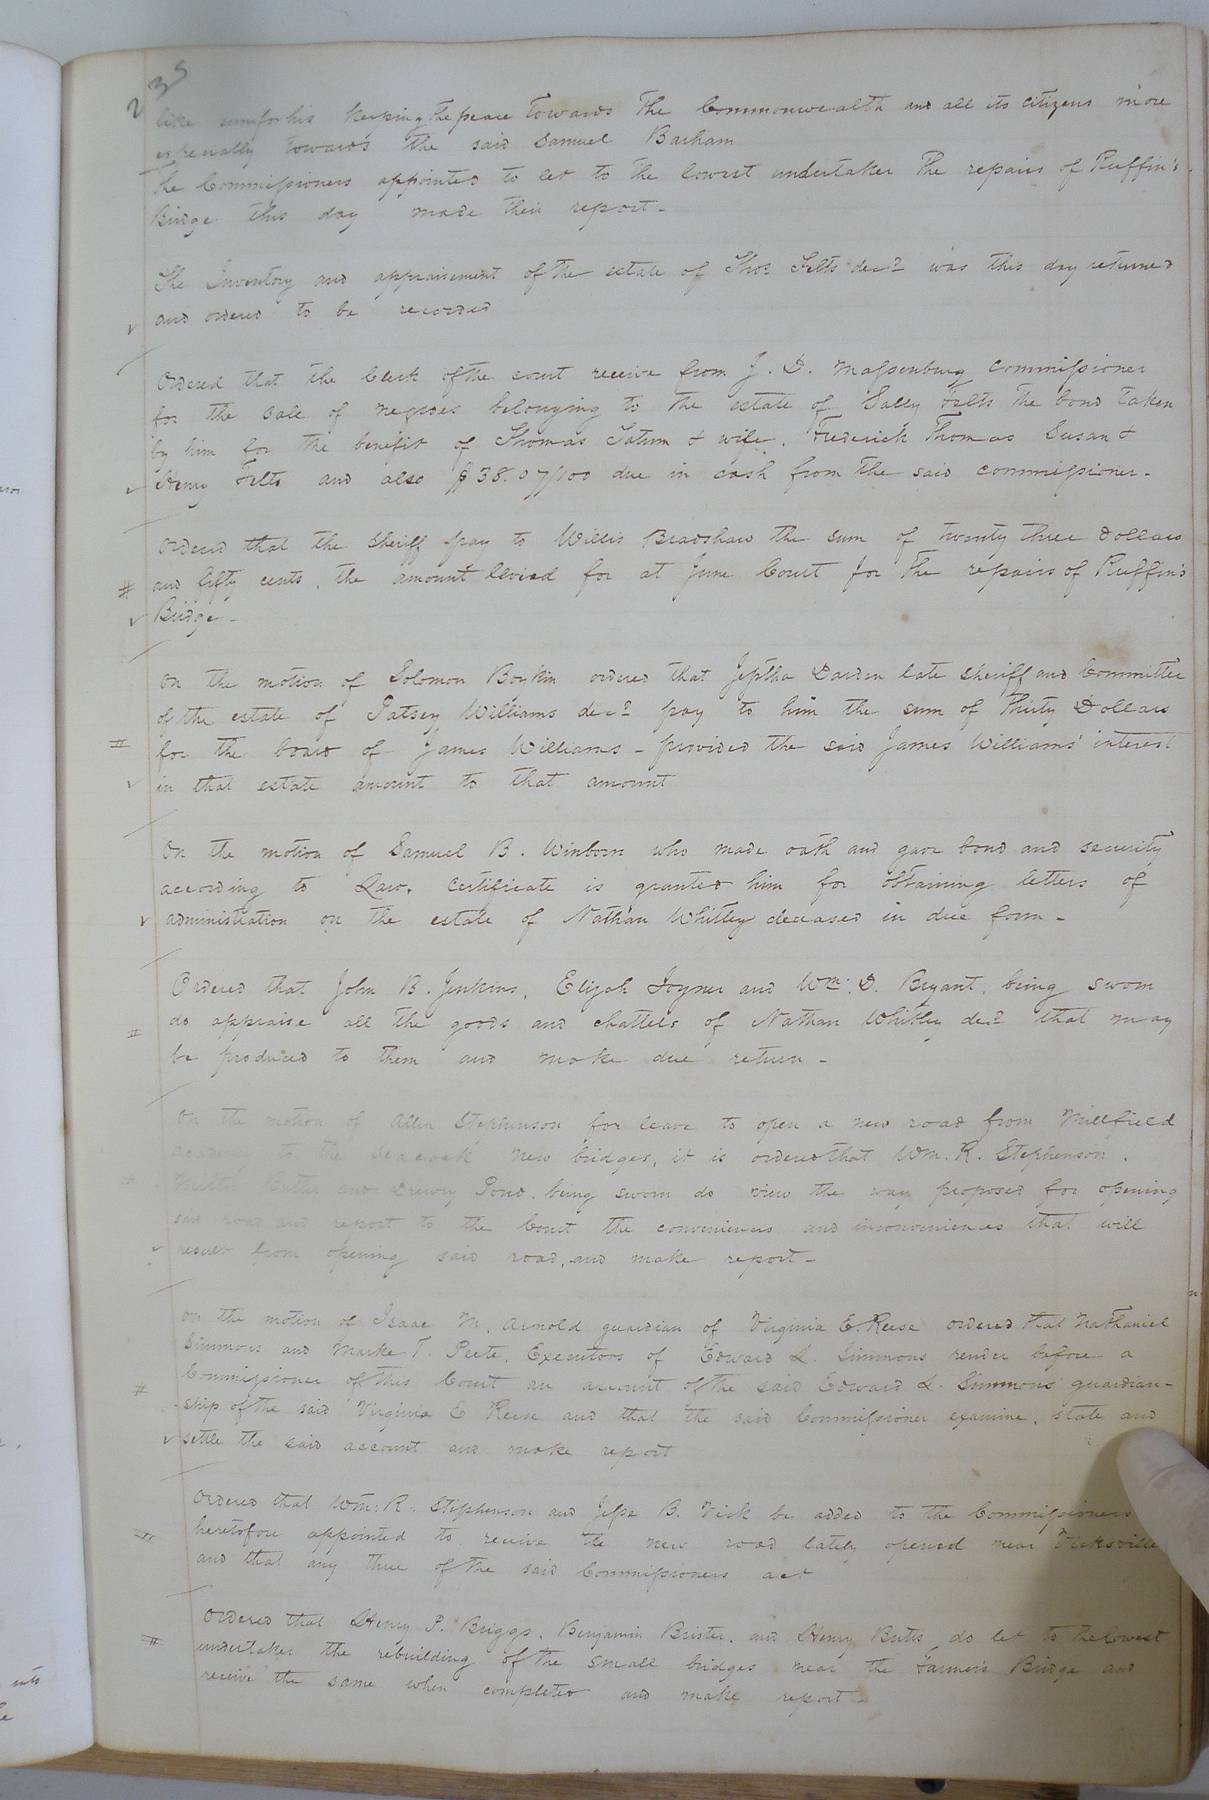 235
like sum for his keeping the peace towards the Commonwealth and all its citizens more
especially towards the said Samuel Barham
The Commissioners appointed to let to the lowest undertaker the repairs of Ruffin's
Bridge this day made their report-
The Inventory and appraisement of the estate of Thos Felts decd was this day returned
and ordered to be recorded
Ordered that the Clerk of the court receive from J. D. Massenburg Commissioner
for the sale of negroes belonging to the estate of Sally Felts the bond taken
by him for the benefit of Thomas Tatum & wife, Frederick Thomas Susan &
Henry Felts and also $38.07/100 due in cash from the said commissioner-
Ordered that the Sheriff pay to Willis Bradshaw the sum of twenty three Dollars
and fifty cents, the amount levied for at June Court for the repairs of Ruffin's
Bridge-
On the motion of Solomon Boykin ordered that Jeptha Darden late Sheriff and Committee
of the estate of Patsey Williams decd pay to him the sum of Thirty Dollars
for the board of James Williams - provided the said James Williams' interest
in that estate amount to that amount
On the motion of Samuel B. Winborn who made oath and gave bond and security
according to Law, certificate is granted him for obtaining letters of
administration on the estate of Nathan Whitley deceased in due form-
Ordered that John B. Jenkins, Elijah Joyner and Wm. D. Bryant, being sworn
do appraise all the goods and chattels of Nathan Whitley decd that may
be produced to them and make due return-
On the motion of Allen Stephenson for leave to open a new road from Millfield
academy to the Seacock new bridges, it is ordered that Wm. R. Stephenson,
Butts and Drewry Pond, being sworn do view the way proposed for opening
said road and report to the Court the conveniences and inconveniences that will
result from opening said road, and make report-
On the motion of Isaac M. Arnold guardian of Virginia E. Reese ordered that Nathaniel
Simmons and Marke T. Peete, Executors of Edward L. Simmons render before a
Commissioner of this Court an account of the said Edward L. Simmons' guardian-
ship of the said Virginia E Reese and that the said Commissioner examine, state and
settle the said account and make report
Ordered that Wm: R. Stephenson and Jesse B. Vick be added to the Commissioners
heretofore appointed to receive the new road lately opened near Vicksville
and that any three of the said Commissioners act
Ordered that Henry P. Briggs, Benjamin Brister, and Henry Butts do let to the lowest
undertaker the rebuilding of the small bridges near the Farmer's Bridge and
receive the same when completed and make report